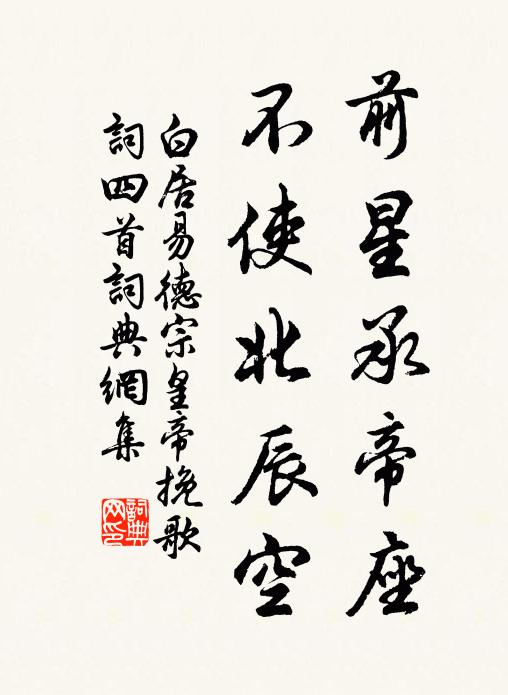 前星承帝座
不使北辰空
白居易德宗皇帝挽歌
詞四首詞典網集
詞典
网印